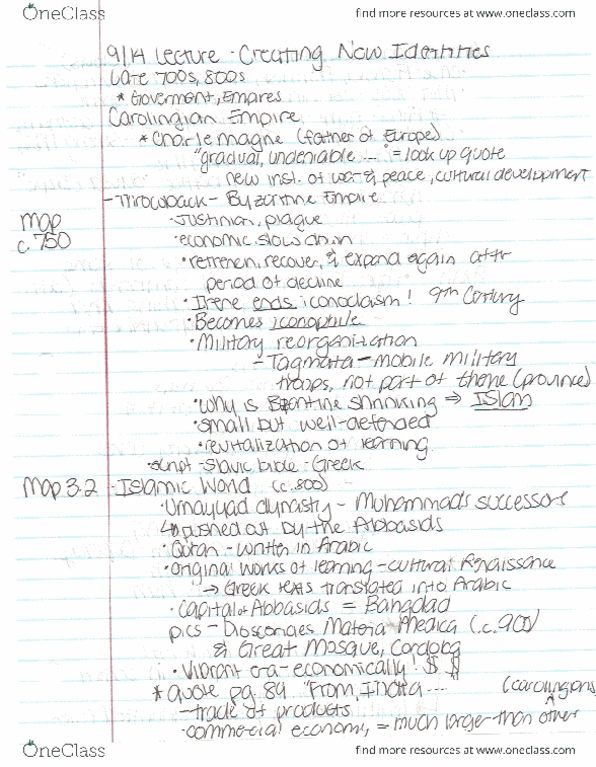 OneClass
find more resources at www.oneclass.com
9/14 Lecture - Creating New Identities
Late 700s, 800s
* Goverment, Empires
Carolingian Empire
* Charlemagne (father of Europe)
"gradual, undeniable ...." = look up quote
new inst. of war & peace, cultural development
- Throwback - Byzantine Empire
Map
c. 750
· Justinian, plague
· economic slow down
· retrench, recover, & expand again after
period of decline
· Irene ends iconoclasm! 9th Century
· Becomes iconophile
· Military reorganization
- Tagmata - mobile military
troops, not part of theme (province)
· Why is Byzantine shrinking ⇒ Islam
· small but well-defended
· revitalization of learning
· script - Slavic bible - Greek
Map 3.2
· Islamic World (c. 800)
· Umayyad dynasty - Muhammad's successors
↳ pushed out by the Abbasids
· Quran - written in Arabic
· original works of learning - cultural Renaissance
→ Greek texts translated into Arabic
· Capital of Abbasids = Bangdad
pics - Materia Medica (c. 900)
& Great Mosque, Cordoba
· Vibrant era - economically! $ $
* quote pg. 89 "From India ....
(carolingians
- trade of products
· commercial economy, = much larger than other
OneClass
find more resources at www.oneclass.com